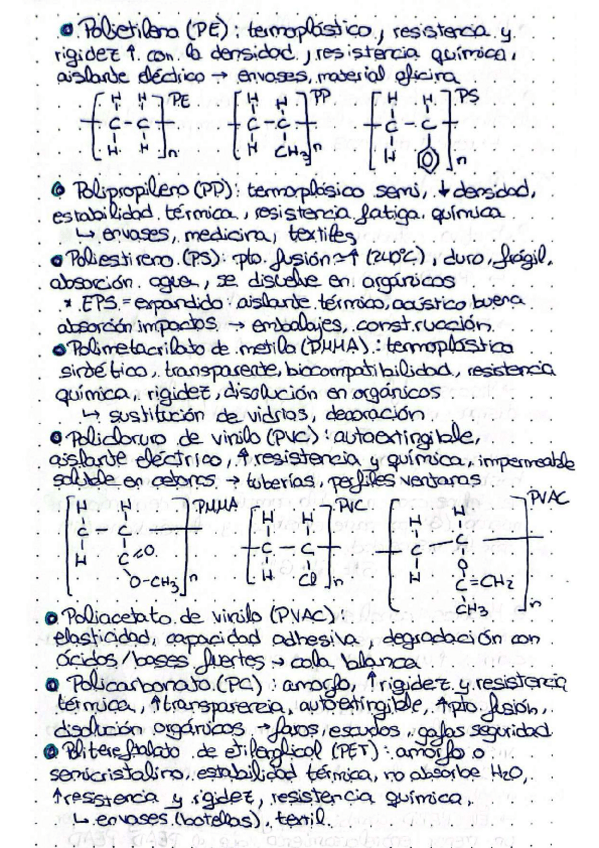 Polietileno (PE): termoplástico, resistencia y
rigidez ↑ con la densidad, resistencia química,
aislante eléctrico → envases, material oficina
[ H H ] PE [ H H ] PP [ H H ] PS
C - C C - C C - C
H H n H CH₃ n H n
Polipropileno (PP): termoplásico semi, ↓ densidad,
estabilidad térmica, resistencia fatiga química
↳ envases, medicina, textiles
Poliestireno (PS): pto. fusión ↑ (240ºC), duro, frágil,
absorción agua, se disuelve en orgánicos
* EPS = expandido: aislante térmico, acústico buena
absorción impactos → embalajes, construcción
Polimetacrilato de metilo (PMMA): termoplástico
sintético, transparente, biocompatibilidad, resistencia
química, rigidez, disolución en orgánicos
↳ sustitución de vidrios, decoración
Policloruro de vinilo (PVC): autoextingible,
aislante eléctrico, ↑ resistencia y química, impermeable
soluble en cetonas → tuberías, perfiles ventanas
[ H H ] PMMA [ H H ] PVC [ H H ] PVAC
C - C C - C C - C
H C=O H Cl n H O
O-CH₃ n C=CH₂
CH₃ n
Poliacetato de vinilo (PVAC)
elasticidad, capacidad adhesiva, degradación con
ácidos/bases fuertes → cola blanca
Policarbonato (PC): amorfo, ↑ rigidez y resistencia
térmica, ↑ transparencia, autoextingible, ↑ pto. fusión,
disolución orgánicos → faros, escudos, gafas seguridad
Plitereftalato de etilenglicol (PET): amorfo o
semicristalino, estabilidad térmica, no absorbe H₂O,
↑ resistencia y rigidez, resistencia química,
↳ envases (botellas), textil.